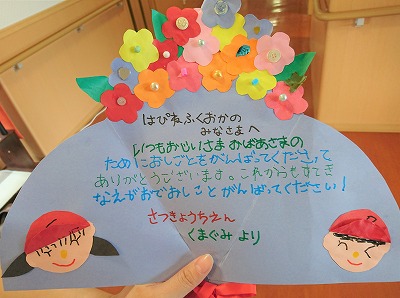 はぴね ふくおかの
みなさまへ
いつもおじいさま おばあさまの
ために おしごとを がんばってくださって
ありがとうございます。これからもすてき
なえがおで おしごと がんばってください!
さつきようちえん
くまぐみ より